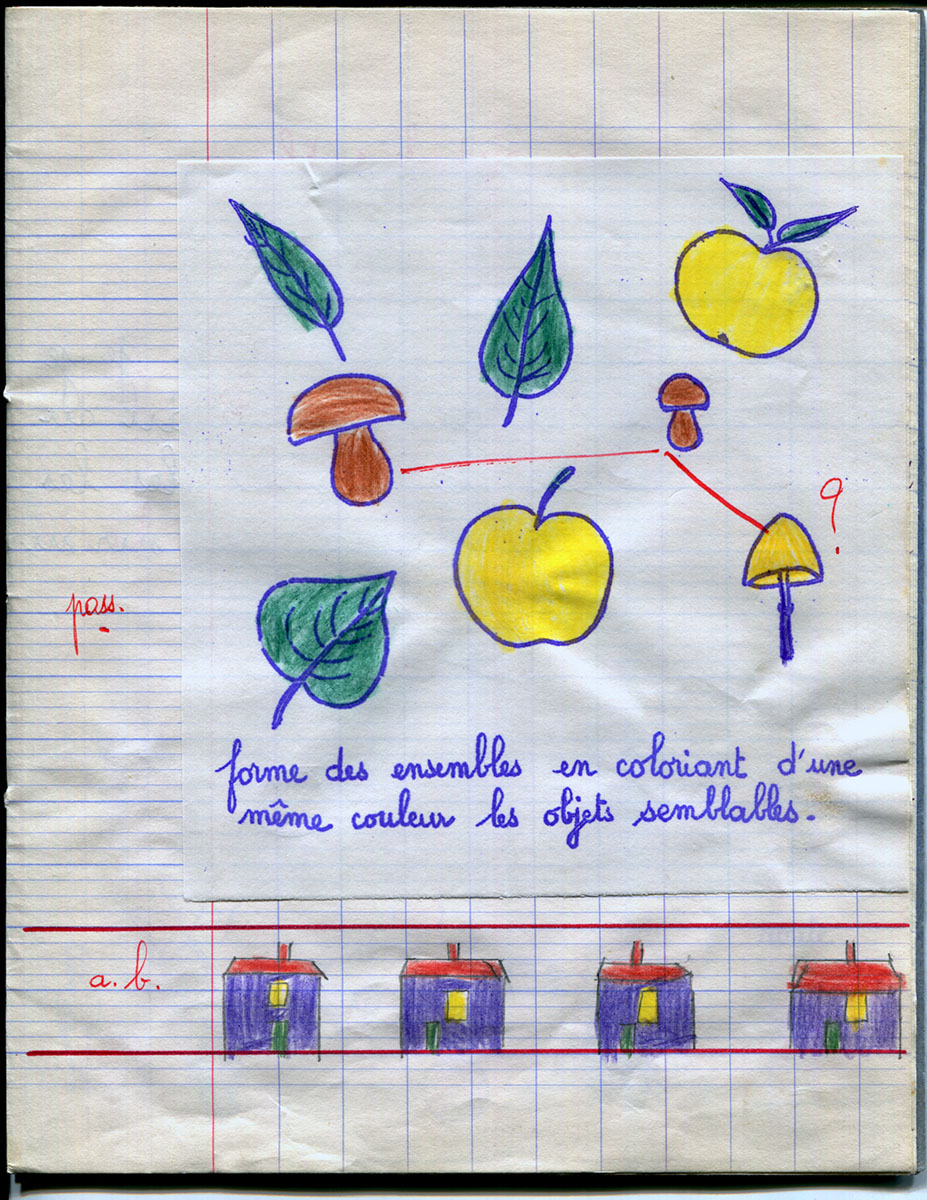 ?
pass.
forme des ensembles en coloriant d'une
même couleur les objets semblables.
a.b.